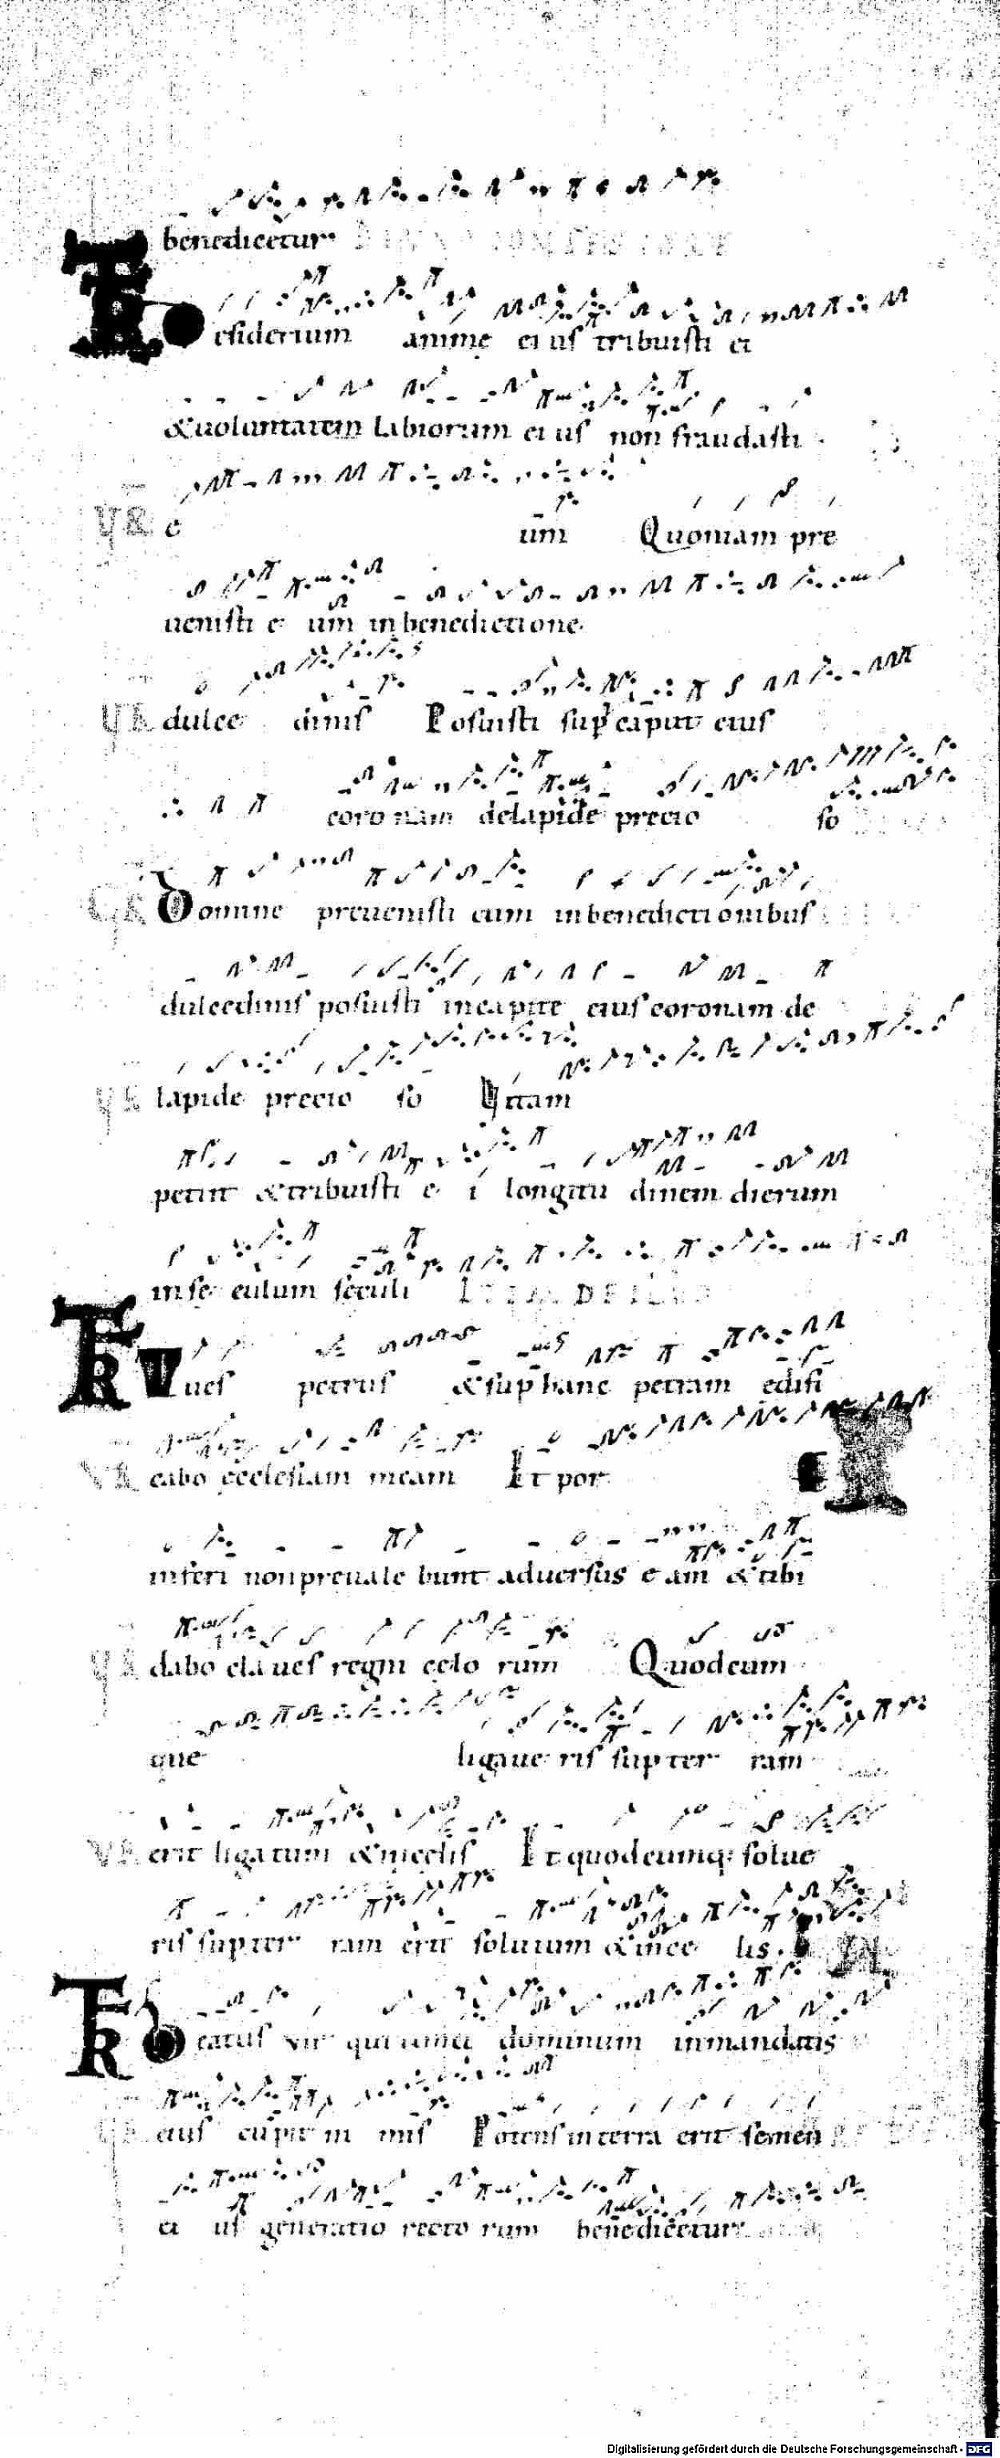 benedicetur
TR Desiderium anime ei us tribuisti ei
&uoluntatem labiorum ei us non fraudasti
e um Quoniam pre
uenisti e um inbenedictione
dulce dinis Posuisti sup caput eius
coro nam delapide precio so
GR Domine preuenisti eum inbenedictionibus
dulcedinis posuisti incapite eius coronam de
lapide precio so Vitam
petiit &tribuisti e i longitu dinem dierum
inse culum seculi
TR Tu es petrus &sup hanc petram edifi
cabo ecclesiam meam Et por
inferi nonpreuale bunt aduersus e am &tibi
dabo cla ues regni celo rum Quodcum
que ligaue ris sup ter ram
erit liga tum &incelis Et quodcumq: solue
ris sup ter ram erit solutum &ince lis.
TR Beatus uir qui timet dominum inmandatis
eius cupit ni mis Potens in terra erit semen
ei us generatio recto rum benedicetur
Digitalisierung gefördert durch die Deutsche Forschungsgemeinschaft - DFG